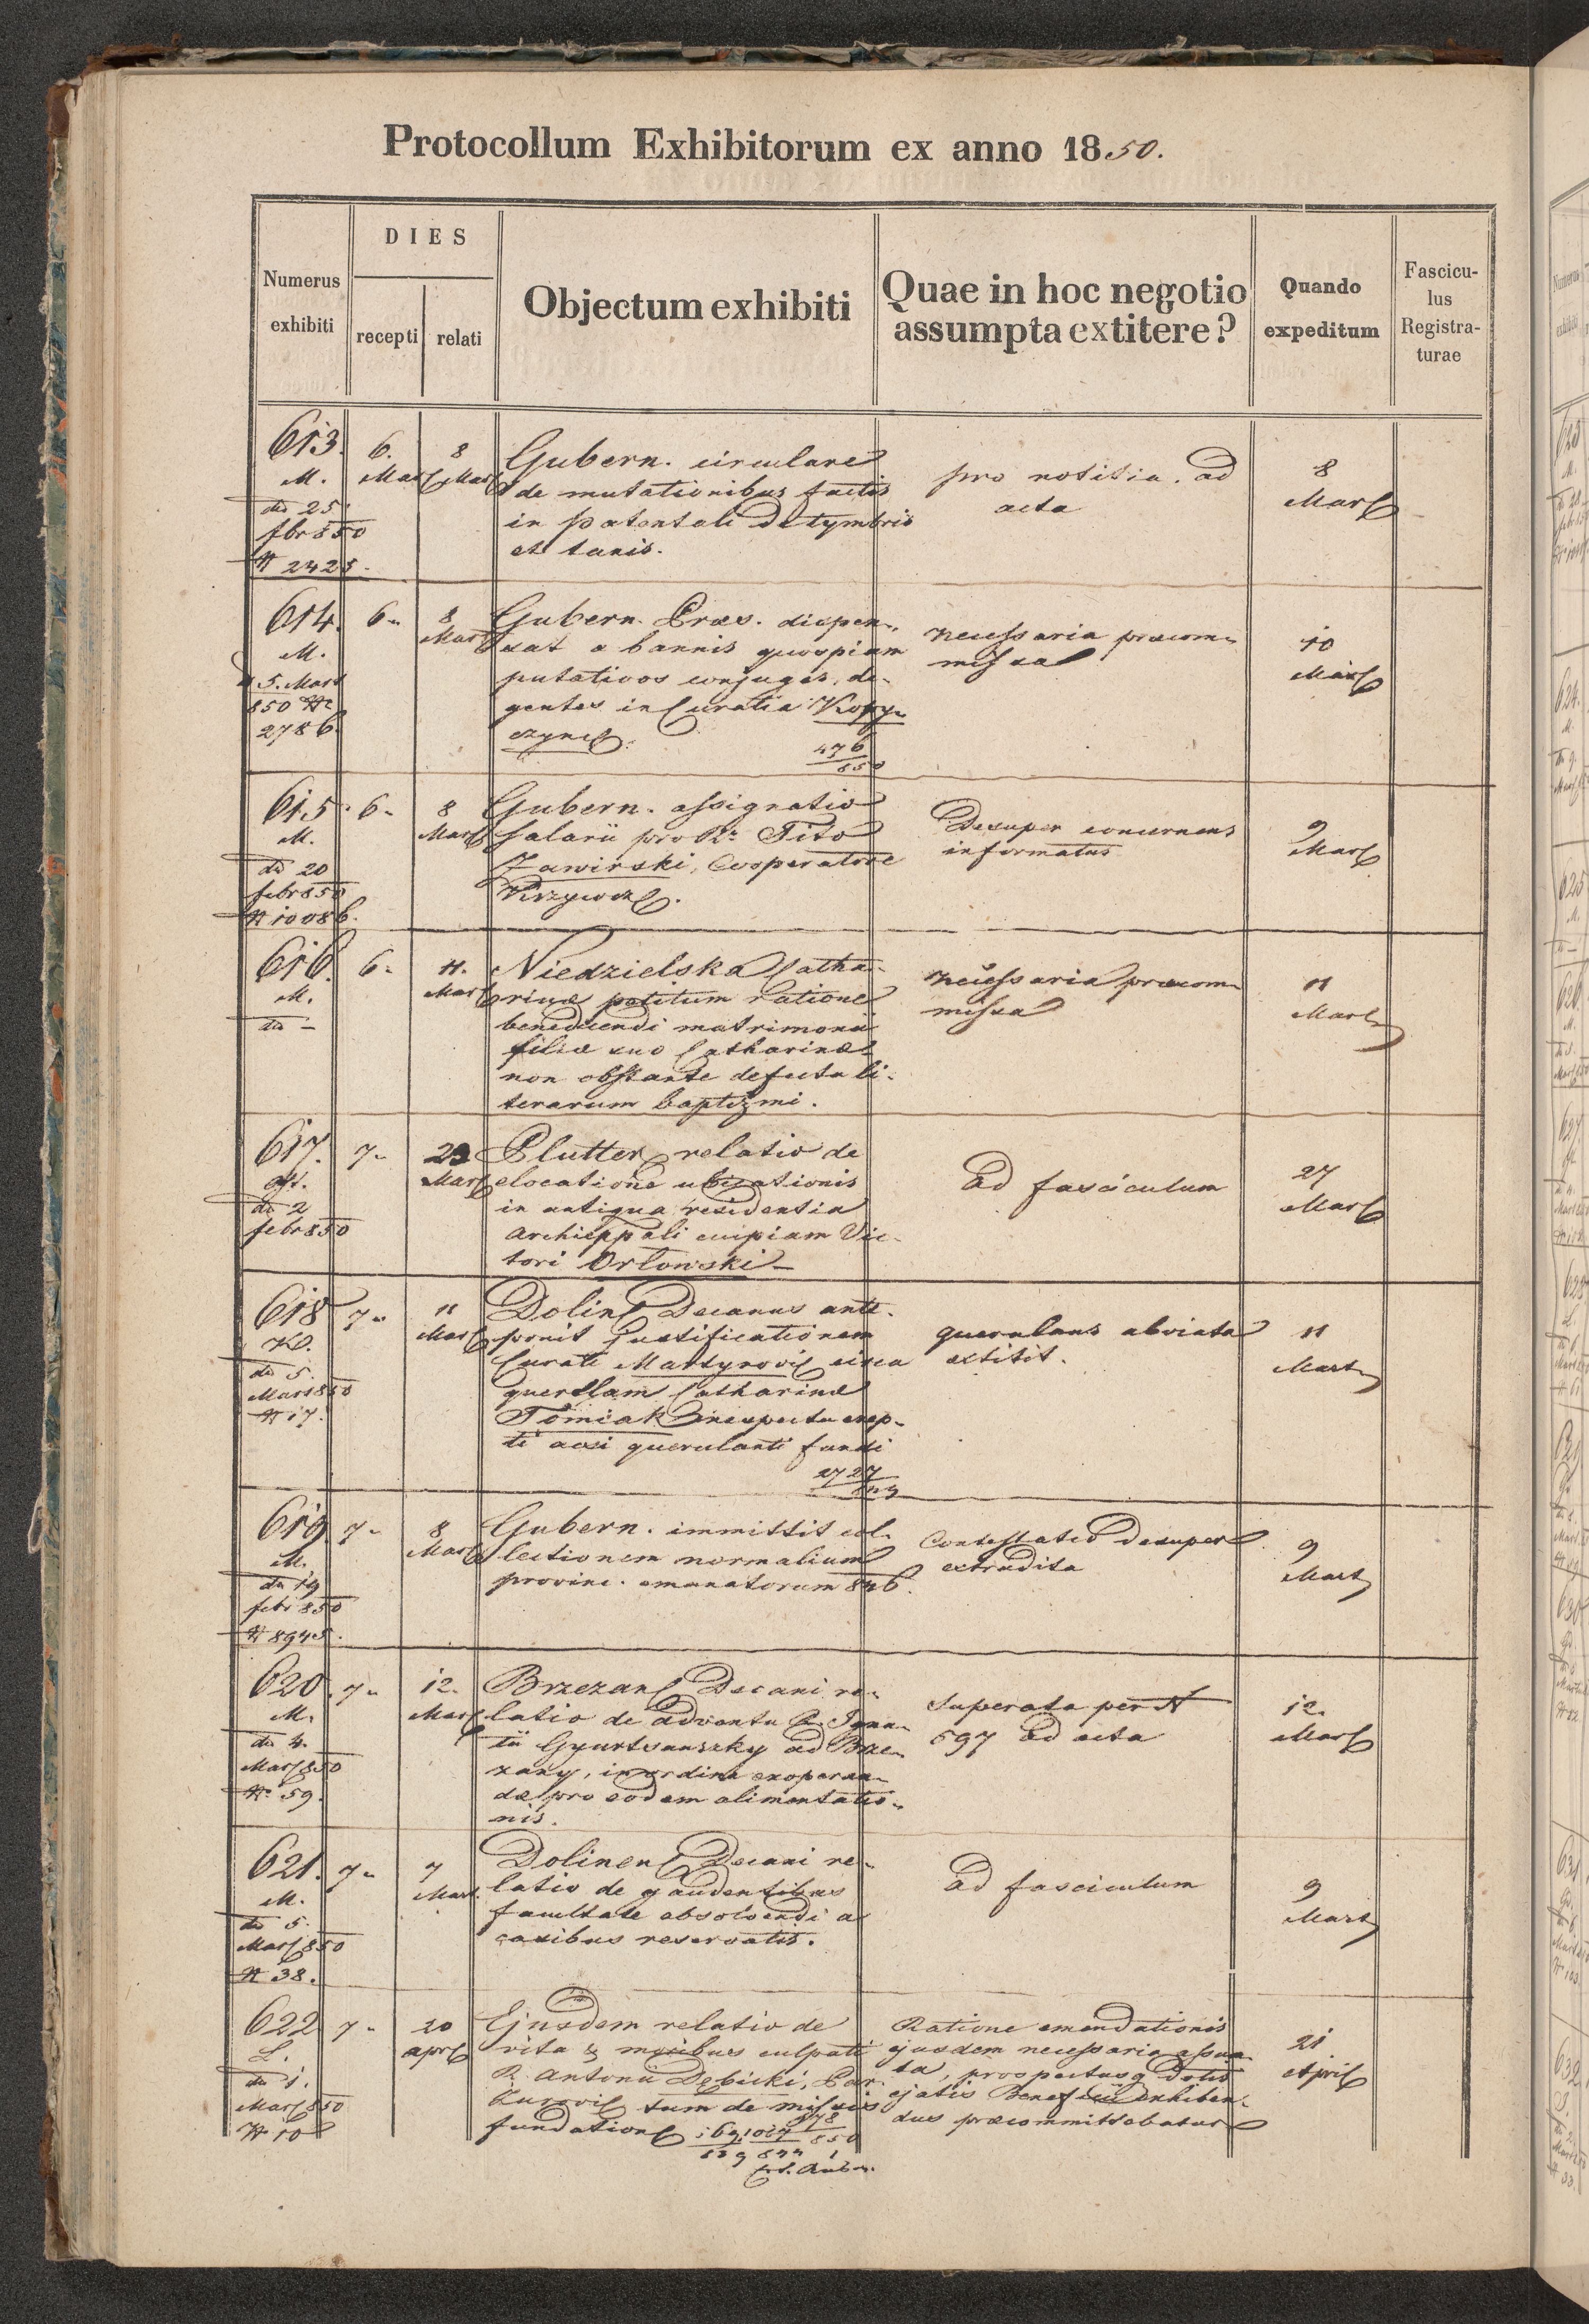 Protocollum Exhibitorum ex anno 1850.
Numerus exhibiti
DIES
recepti
relati
Objectum exhibiti
Quae in hoc negotio assumpta extitere?
Quando expeditum
Fascicu-
lus
Registra-
turae
613.
M.
dto 25
febr 850
N 2425.
6.
Mart
8
Mart
Gubern. circulare
de mutationibus factis
in patentali de tymbris
et taxis.
pro notitia. ad
acta
8
Mart
614.
M.
5. Mart
850 Nr
2786.
6"
8
Mart
Gubern. Præs. dispen-
sat a bannis quospiam
putativos conjuges, de-
gentes in Curatia Kopy-
czynce.
476
850
necessaria præcom-
missa
10
Mart
615.
M.
dto 20
febr 850
N 10086.
6"
8
Mart
Gubern. assignatio
salarii pro R. Tito
Zawirski, Cooperatore
Krzywcz.
Desuper concernens
informatus
9
Mart
616.
M.
dto –
6"
11.
Mart
Niedzielska Catha-
rinæ petitum ratione
benedicendi matrimonii
filiæ suæ Catharinæ
non obstante defectu li-
terarum baptizmi.
necessaria præcom-
missa
11
Mart
617.
dto 2
febr 850
7"
23
Mart
Plutter relatio de
elocatione ubicationis
in antiqua residentia
Archieppali cuipiam Vic-
tori Orłowski –
Ad fasciculum
27
Mart
618
dto 5.
Mart 850
N 17.
7"
11
Mart
Dolin Decanus ante-
ponit justificationem
Curati Martynovic circa
querelam Catharinæ
Tomiak respectu erep-
ti acsi querulanti fundi
2727
querulans abviata
extitit.
11
Mart
619
M.
dto 19
febr 850
N 8945.
7"
8
Mart
Gubern. immittit col-
lectionem normalium
provinc. emanatorum 846.
Contestatio desuper
extradita
9
Mart
620.
M.
dto 4.
Mart 850
N. 59.
7"
12.
Mart
Brzezan Decani re-
latio de adventu R. Igna-
tii Gyurtsanszky ad Brze-
zany, in ordine exoperan-
dæ pro eodem alimentatio-
nis.
Superata per N
597 ad acta
12.
Mart
621.
M.
dto 5.
Mart 850
N 38.
7"
7
Mart.
Dolinen Decani re-
latio de gaudentibus
facultate absolvendi a
casibus reservatis.
Ad fasciculum
9
Mart
622
L.
dto 1.
Mart 850
N 10
7"
20
apri
Ejusdem relatio de
vita & moribus culpati
R. Antonii Dębicki, Par.
Kurovic tum de missis
fundation
Ratione emendationis
ejusdem necessaria assum-
ta, prospectusq dotis
ejatis Beneficii exhiben-
dus præcommittebatur
21
April